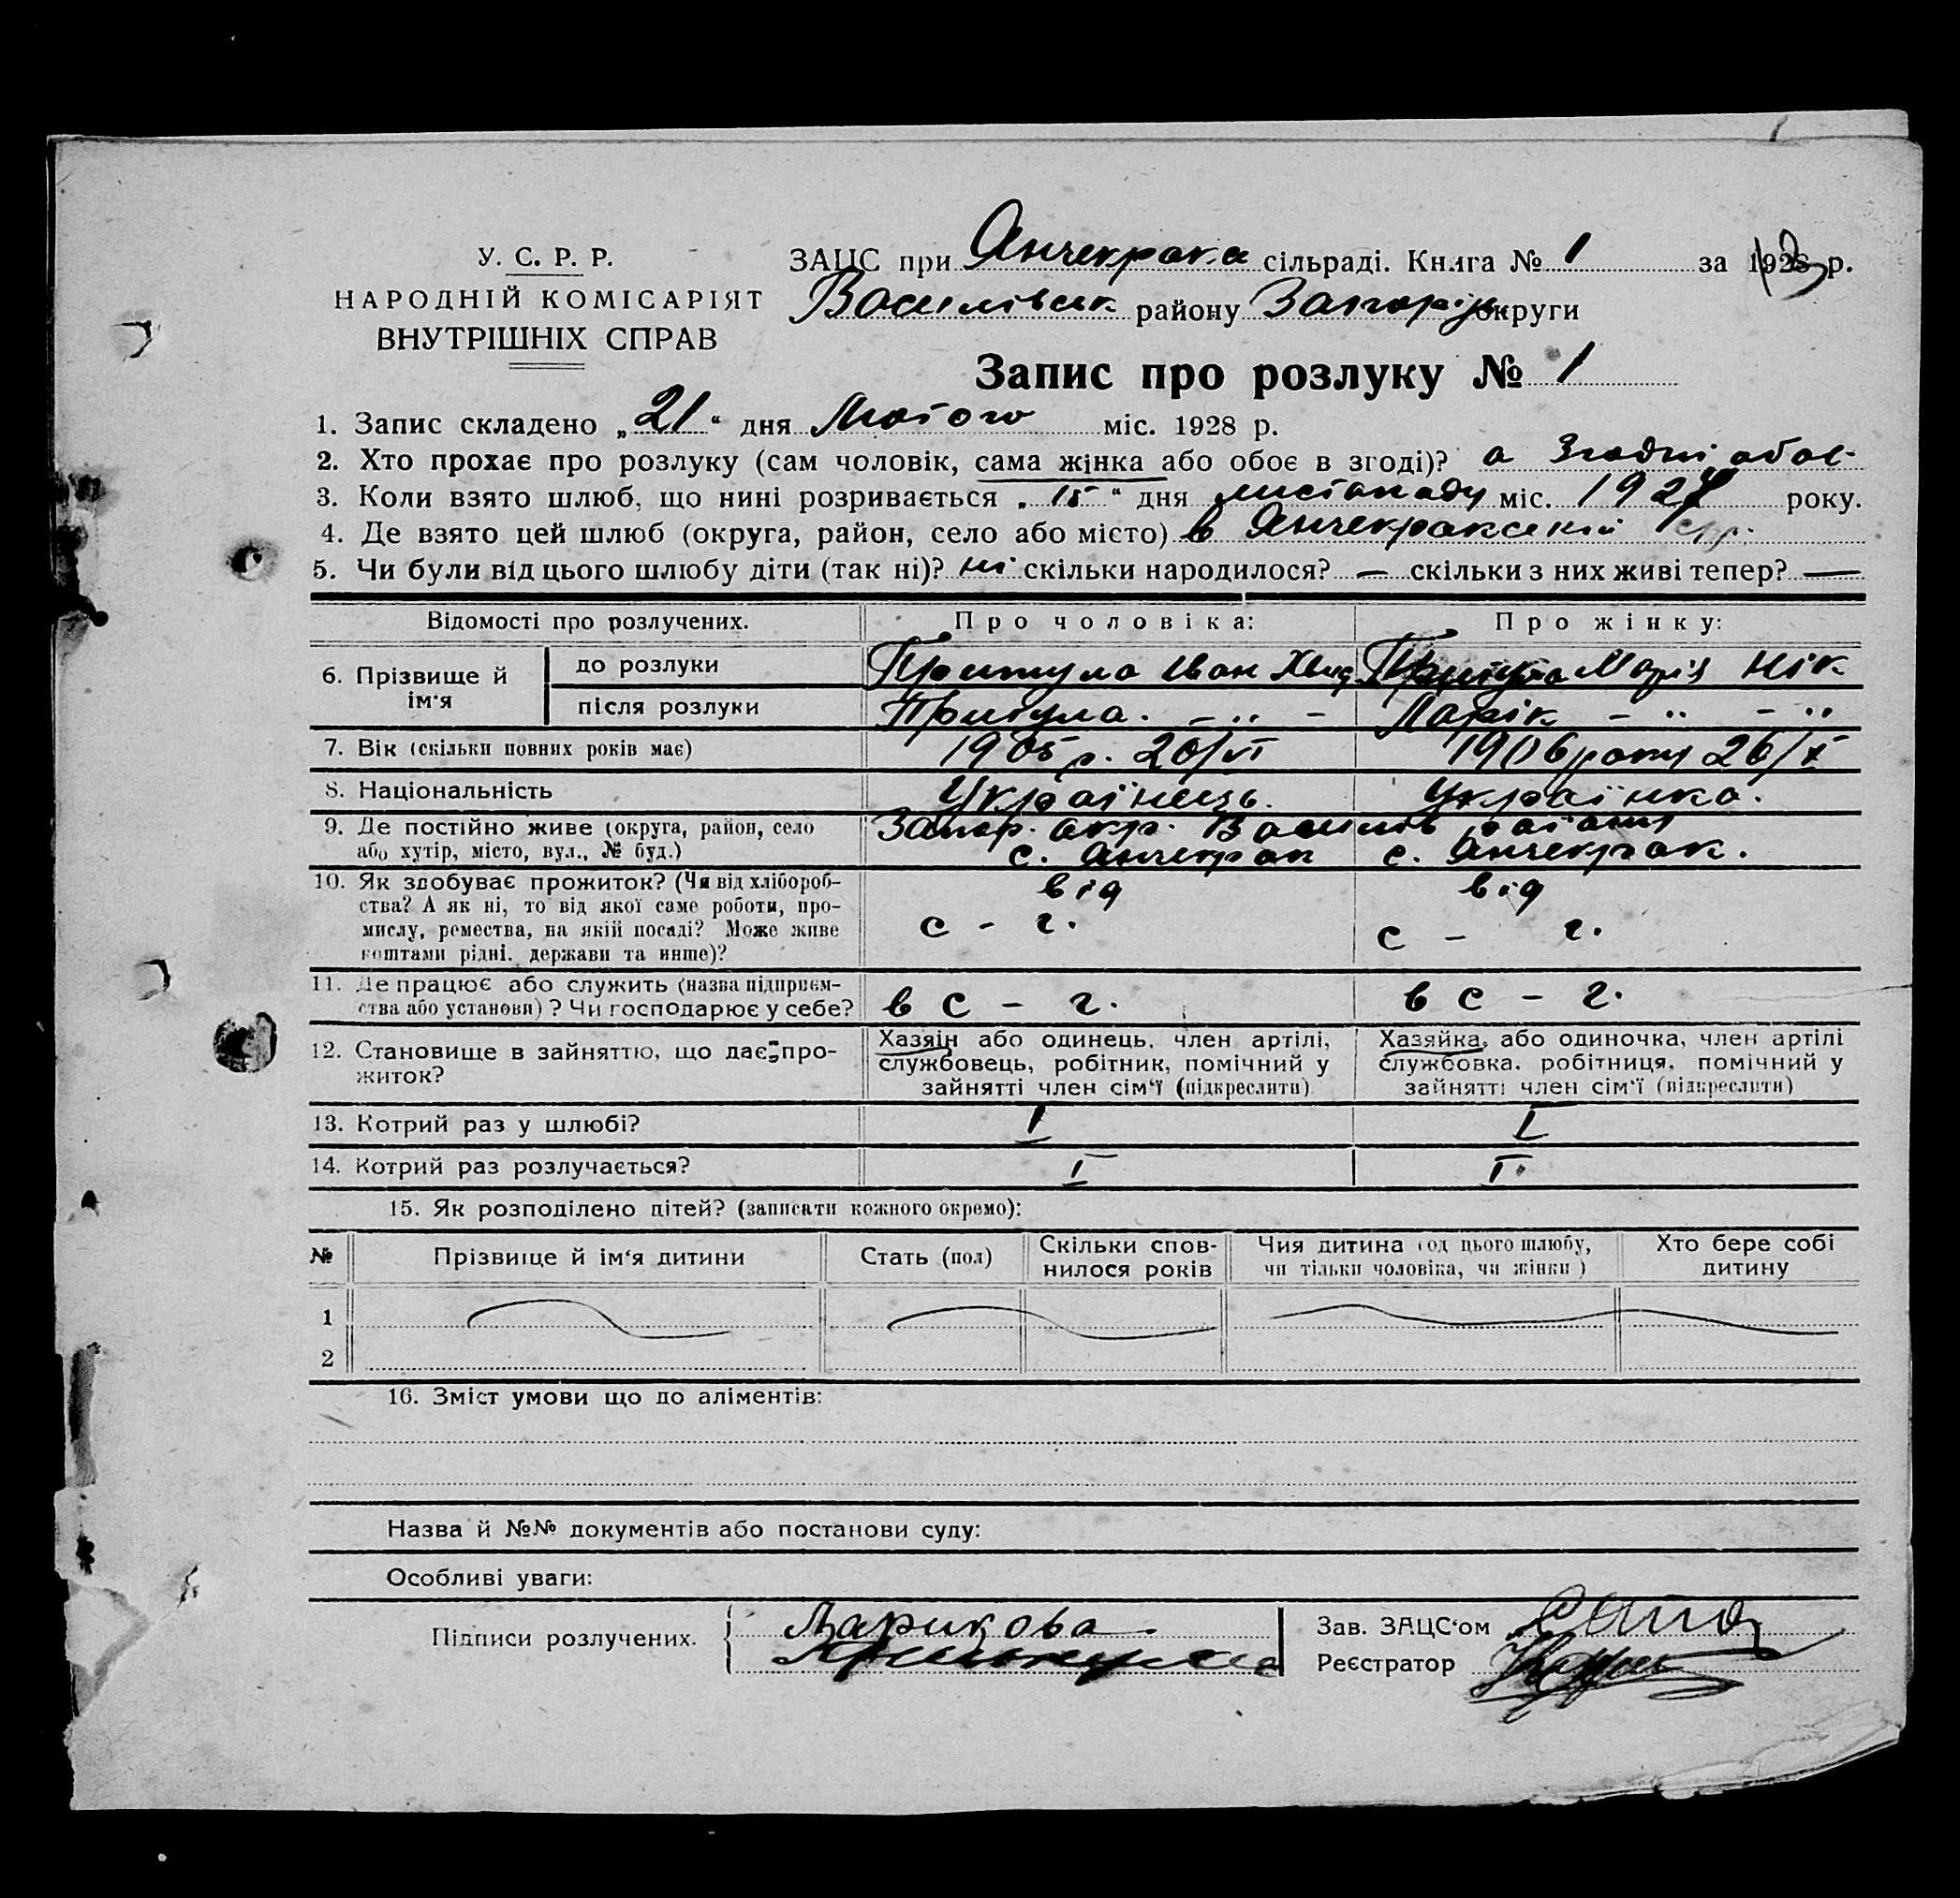 У. С. Р. Р.
НАРОДНІЙ КОМІСАРІЯТ
ВНУТРІШНІХ СПРАВ
ЗАЦС при Янчекрака сільраді. Книга № 1 за 1928 р.
Василівськ району Запоріж. округи
Запис про розлуку № 1
1. Запис складено „21“ дня Лютого міс. 1928 р.
2. Хто прохає про розлуку (сам чоловік, сама жінка або обоє в згоді)? а згодні обоє
3. Коли взято шлюб, що нині розривається „15“ дня листопаду міс. 1927 року.
4. Де взято цей шлюб (округа, район, село або місто) в Янчекракській с/р.
5. Чи були від цього шлюбу діти (так ні)? ні скільки народилося? — скільки з них живі тепер? —
Відомості про розлучених. Про чоловіка: Про жінку:
6. Прізвище й ім‘я до розлуки Притула Іван Притула Марія Нік
після розлуки Притула. - „ - - „ - „
7. Вік (скільки повних років має) 1905 р. 20/VI 1906 року 26/X
8. Національність Українець. Українка.
9. Де постійно живе (округа, район, село
або хутір, місто, вул., № буд.)
Запор. окр. Василів району
с. Янчекрак с. Янчекрак.
10. Як здобуває прожиток? (Чи від хлібороб-
ства? А як ні, то від якої саме роботи, про-
мислу, ремества, на якій посаді? Може живе
коштами рідні, держави та инше)?
від с - г. від с - г.
11. Де працює або служить (назва підприєм-
ства або установи)? Чи господарює у себе?
в с - г. в с - г.
12. Становище в зайняттю, що дає про-
житок?
Хазяїн або одинець, член артілі,
службовець, робітник, помічний у
зайнятті член сім‘ї (підкреслити)
Хазяйка, або одиночка, член артілі
службовка, робітниця, помічний у
зайнятті член сім‘ї (підкреслити)
13. Котрий раз у шлюбі? I I
14. Котрий раз розлучається? I I.
15. Як розподілено дітей? (записати кожного окремо):
№ Прізвище й ім‘я дитини Стать (пол) Скільки спов-
нилося років Чия дитина (од цього шлюбу,
чи тільки чоловіка, чи жінки) Хто бере собі
дитину
1
2
16. Зміст умови що до аліментів:
Назва й №№ документів або постанови суду:
Особливі уваги:
Підписи розлучених. Царикова
Притула
Зав. ЗАЦС‘ом
Реєстратор